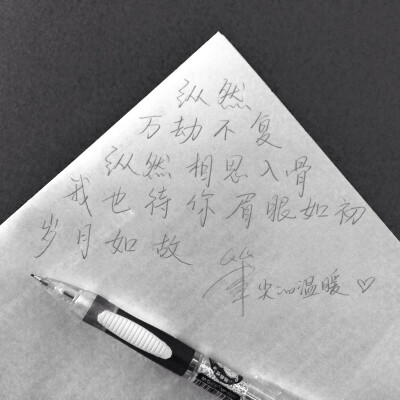 纵然
万劫不复
纵然相思入骨
我也待你眉眼如初
岁月如故
笔尖沁温暖♡